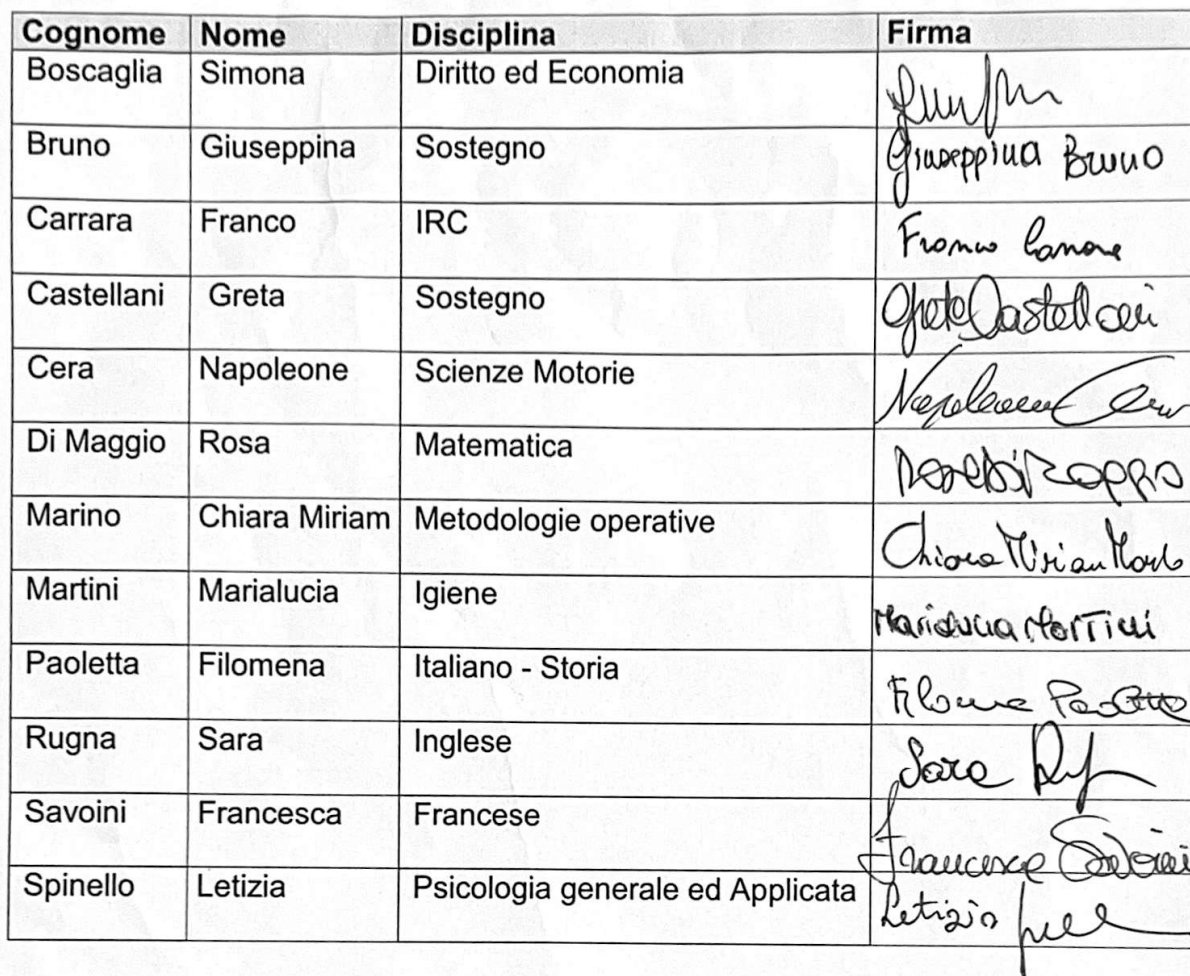 Cognome Nome Disciplina Firma
Boscaglia Simona Diritto ed Economia
Bruno Giuseppina Sostegno Giuseppina Bruno
Carrara Franco IRC Franco Carrara
Castellani Greta Sostegno Greta Castellani
Cera Napoleone Scienze Motorie Napoleone Cera
Di Maggio Rosa Matematica
Marino Chiara Miriam Metodologie operative Chiara Miriam Marino
Martini Marialucia Igiene Marialucia Martini
Paoletta Filomena Italiano - Storia Filomena Paoletta
Rugna Sara Inglese Sara
Savoini Francesca Francese Francesca Savoini
Spinello Letizia Psicologia generale ed Applicata Letizia